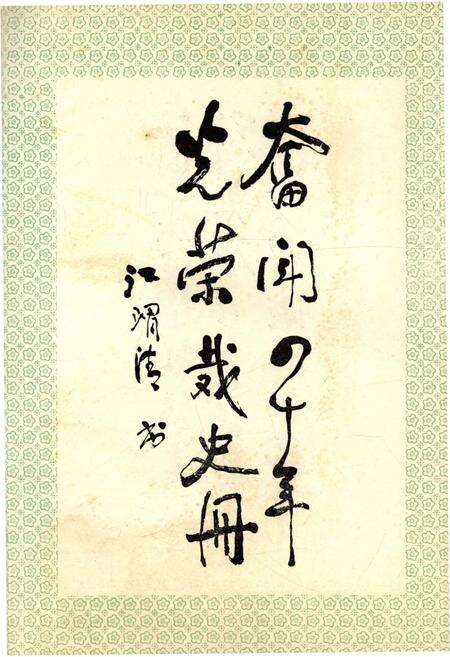 奋斗四十年
光荣载史册
江渭清书